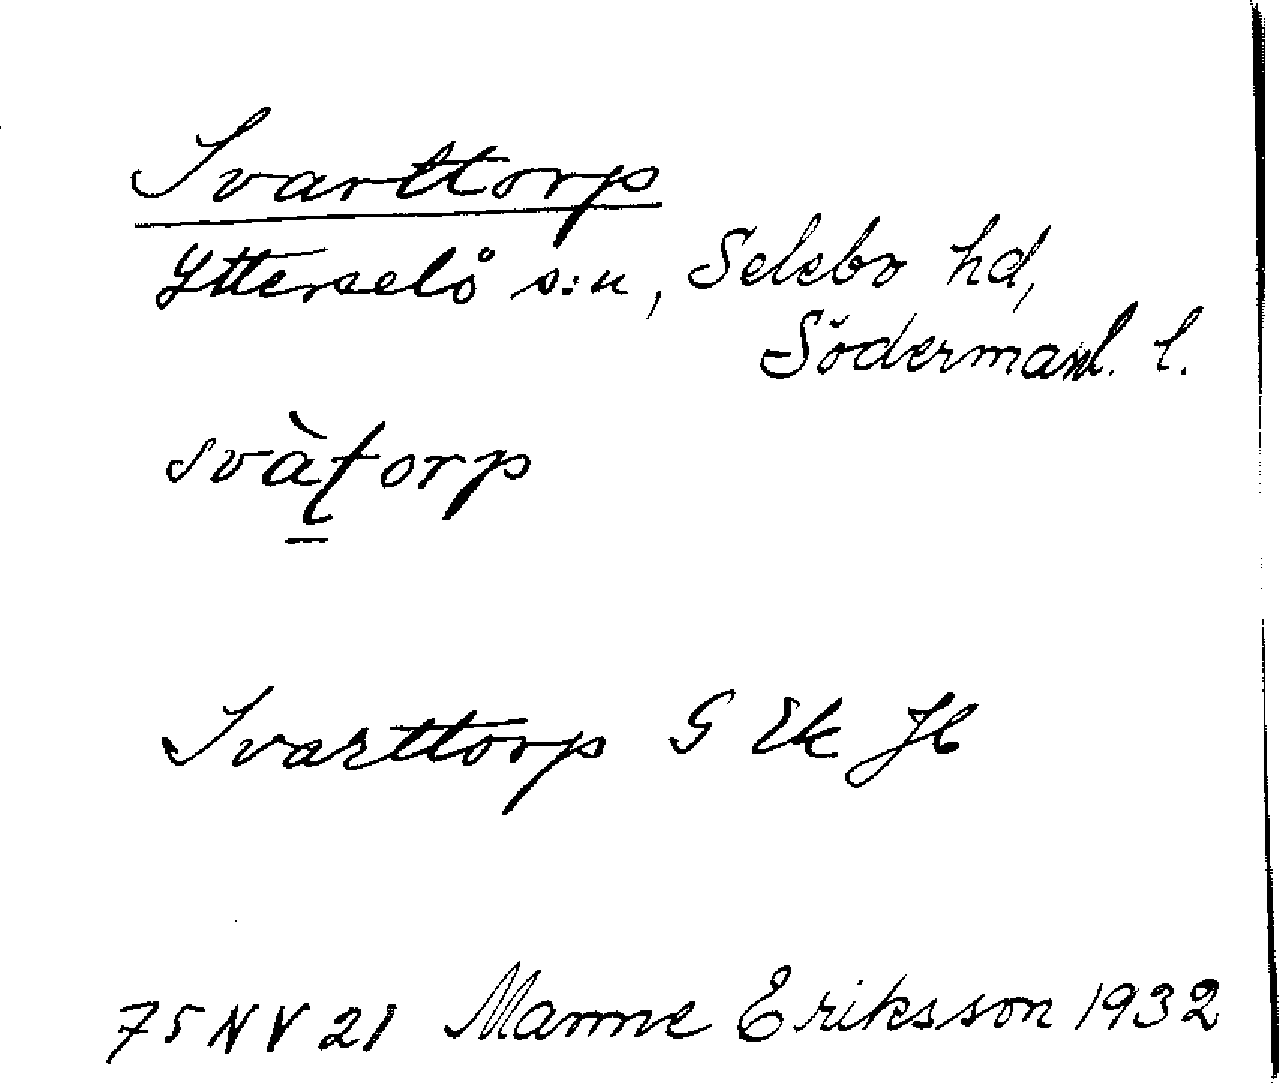 Svarttorp
Ytterselö s:n, Selebo hd,
Södermanl. l.
svàtorp
Svarttorp G Ek JH
75 NV 21 Manne Eriksson 1932